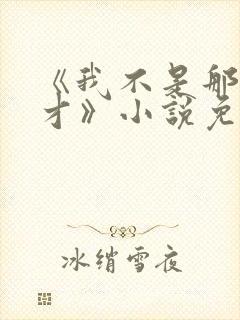 《我不是那
才》小說免
冰绡雪夜